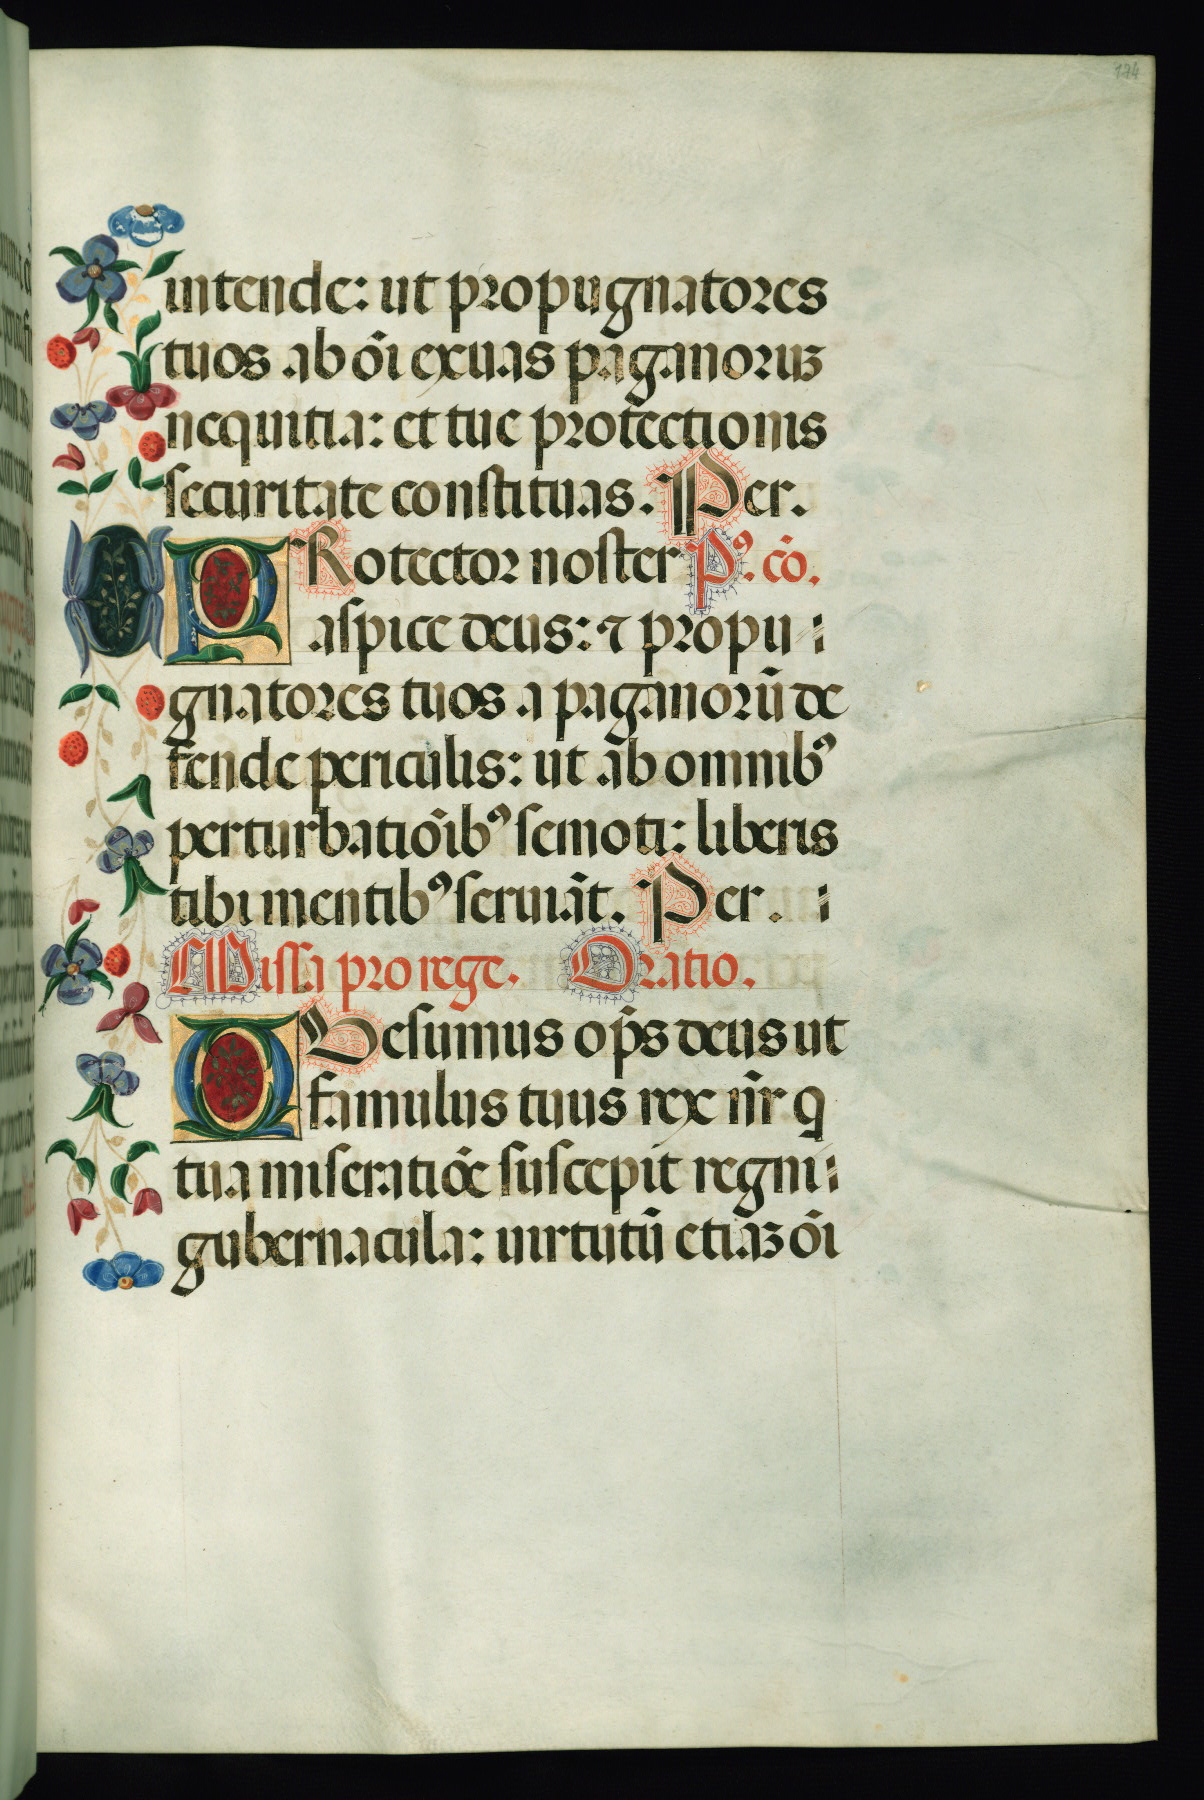 174
intende: ut propugnatores
tuos ab oi̅ exuas paganoruꝫ
nequitia: et tue protectionis
securitate constituas. Per.
PRotector noster Pꝰ. co̅.
aspice deus: ⁊ propu
gnatores tuos a paganoru̅ de
fende periculis: ut ab omnibꝰ
perturbatio̅ibꝰ semoti: liberis
tibi mentibꝰ seruia̅t. Per.
Missa pro rege. Oratio.
QVesumus op̅s deus ut
famulus tuus rex nr̅ q
tua miseratio̅e suscepit regni
gubernacula: uirtutu̅ etiaꝫ oi̅